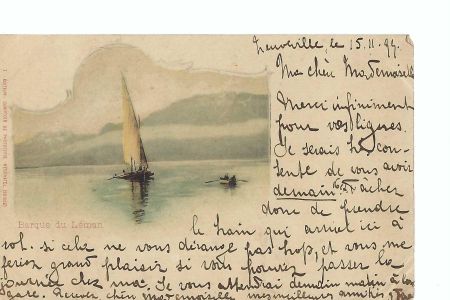 Neuveville, le 15.11.97.
Ma chère Mademoiselle
Merci infiniment
pour vos lignes.
Je serais très con-
tente de vous avoir
demain. Tâcher
donc de prendre
le train qui arrive ici à
si cela ne vous dérange pas trop, et vous me
feriez grand plaisir si vous pouvez passer la
journée chez moi. Je vous attendrai demain matin à la
gare. Recevez chère Mademoiselle mes meilleurs
Barque du Léman